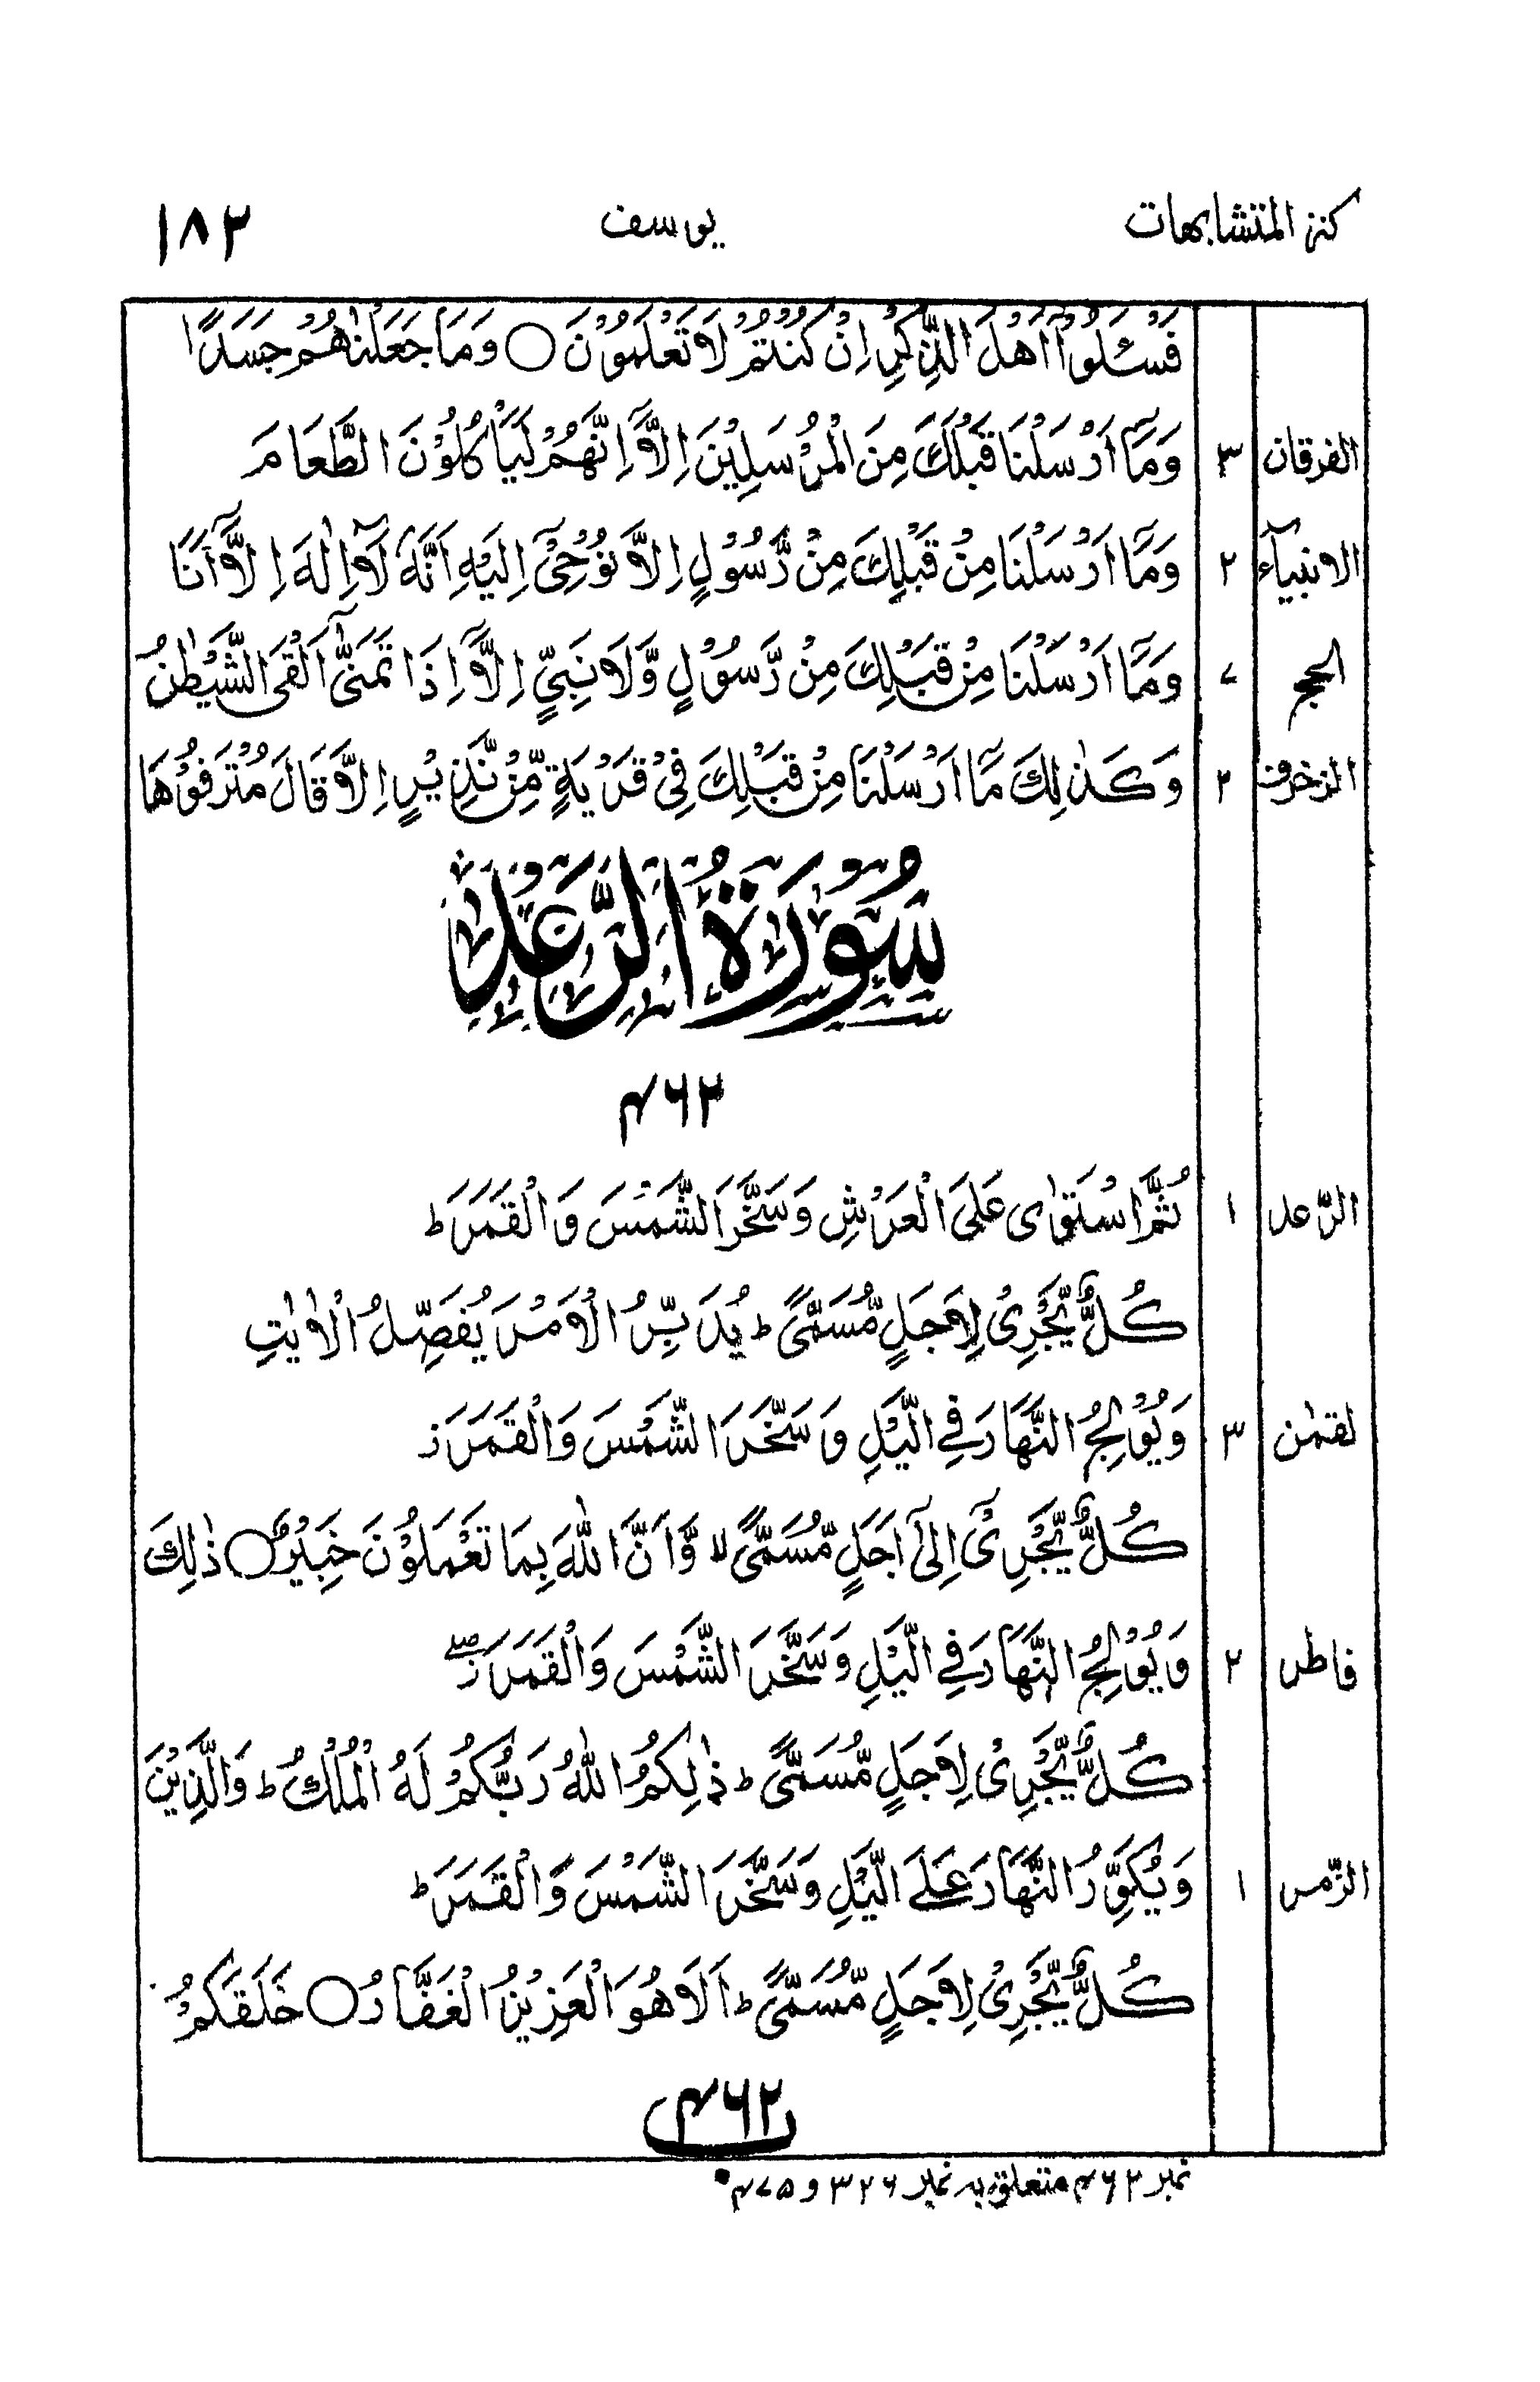 كنز المتشابهات يوسف ١٨٣
فَسْـَٔلُوْٓا اَهْلَ الذِّكْرِ اِنْ كُنْتُمْ لَا تَعْلَمُوْنَ ○ وَمَا جَعَلْنٰهُمْ جَسَدًا
الفرقان ٣ وَمَآ اَرْسَلْنَا قَبْلَكَ مِنَ الْمُرْسَلِيْنَ اِلَّآ اِنَّهُمْ لَيَاْكُلُوْنَ الطَّعَامَ
الانبیآء ٢ وَمَآ اَرْسَلْنَا مِنْ قَبْلِكَ مِنْ رَّسُوْلٍ اِلَّا نُوْحِيْٓ اِلَيْهِ اَنَّهٗ لَآ اِلٰهَ اِلَّآ اَنَا
الحج ٧ وَمَآ اَرْسَلْنَا مِنْ قَبْلِكَ مِنْ رَّسُوْلٍ وَّلَا نَبِيٍّ اِلَّآ اِذَا تَمَنّٰٓى اَلْقَى الشَّيْطٰنُ
الزخرف ٢ وَكَذٰلِكَ مَآ اَرْسَلْنَا مِنْ قَبْلِكَ فِيْ قَرْيَةٍ مِّنْ نَّذِيْرٍ اِلَّا قَالَ مُتْرَفُوْهَا
سُوْرَةُ الرَّعْدِ
۴۶۲
الرّعد ١ ثُمَّ اسْتَوٰى عَلَى الْعَرْشِ وَسَخَّرَ الشَّمْسَ وَالْقَمَرَ ط
كُلٌّ يَّجْرِيْ لِاَجَلٍ مُّسَمًّى ط يُدَبِّرُ الْاَمْرَ يُفَصِّلُ الْاٰيٰتِ
لقمٰن ٣ وَيُوْلِجُ النَّهَارَ فِي الَّيْلِ وَسَخَّرَ الشَّمْسَ وَالْقَمَرَ ز
كُلٌّ يَّجْرِيْٓ اِلٰٓى اَجَلٍ مُّسَمًّى لا وَّاَنَّ اللّٰهَ بِمَا تَعْمَلُوْنَ خَبِيْرٌ ○ ذٰلِكَ
فاطر ٢ وَيُوْلِجُ النَّهَارَ فِي الَّيْلِ وَسَخَّرَ الشَّمْسَ وَالْقَمَرَ ز صلے
كُلٌّ يَّجْرِيْ لِاَجَلٍ مُّسَمًّى ط ذٰلِكُمُ اللّٰهُ رَبُّكُمْ لَهُ الْمُلْكُ ط وَالَّذِيْنَ
الزّمر ١ وَيُكَوِّرُ النَّهَارَ عَلَى الَّيْلِ وَسَخَّرَ الشَّمْسَ وَالْقَمَرَ ط
كُلٌّ يَّجْرِيْ لِاَجَلٍ مُّسَمًّى ط اَلَا هُوَ الْعَزِيْزُ الْغَفَّارُ ○ خَلَقَكُمْ
۴۶۲
نمبر ۴۶۲ متعلق بہ نمبر ۳۲۶ و ۴۷۵